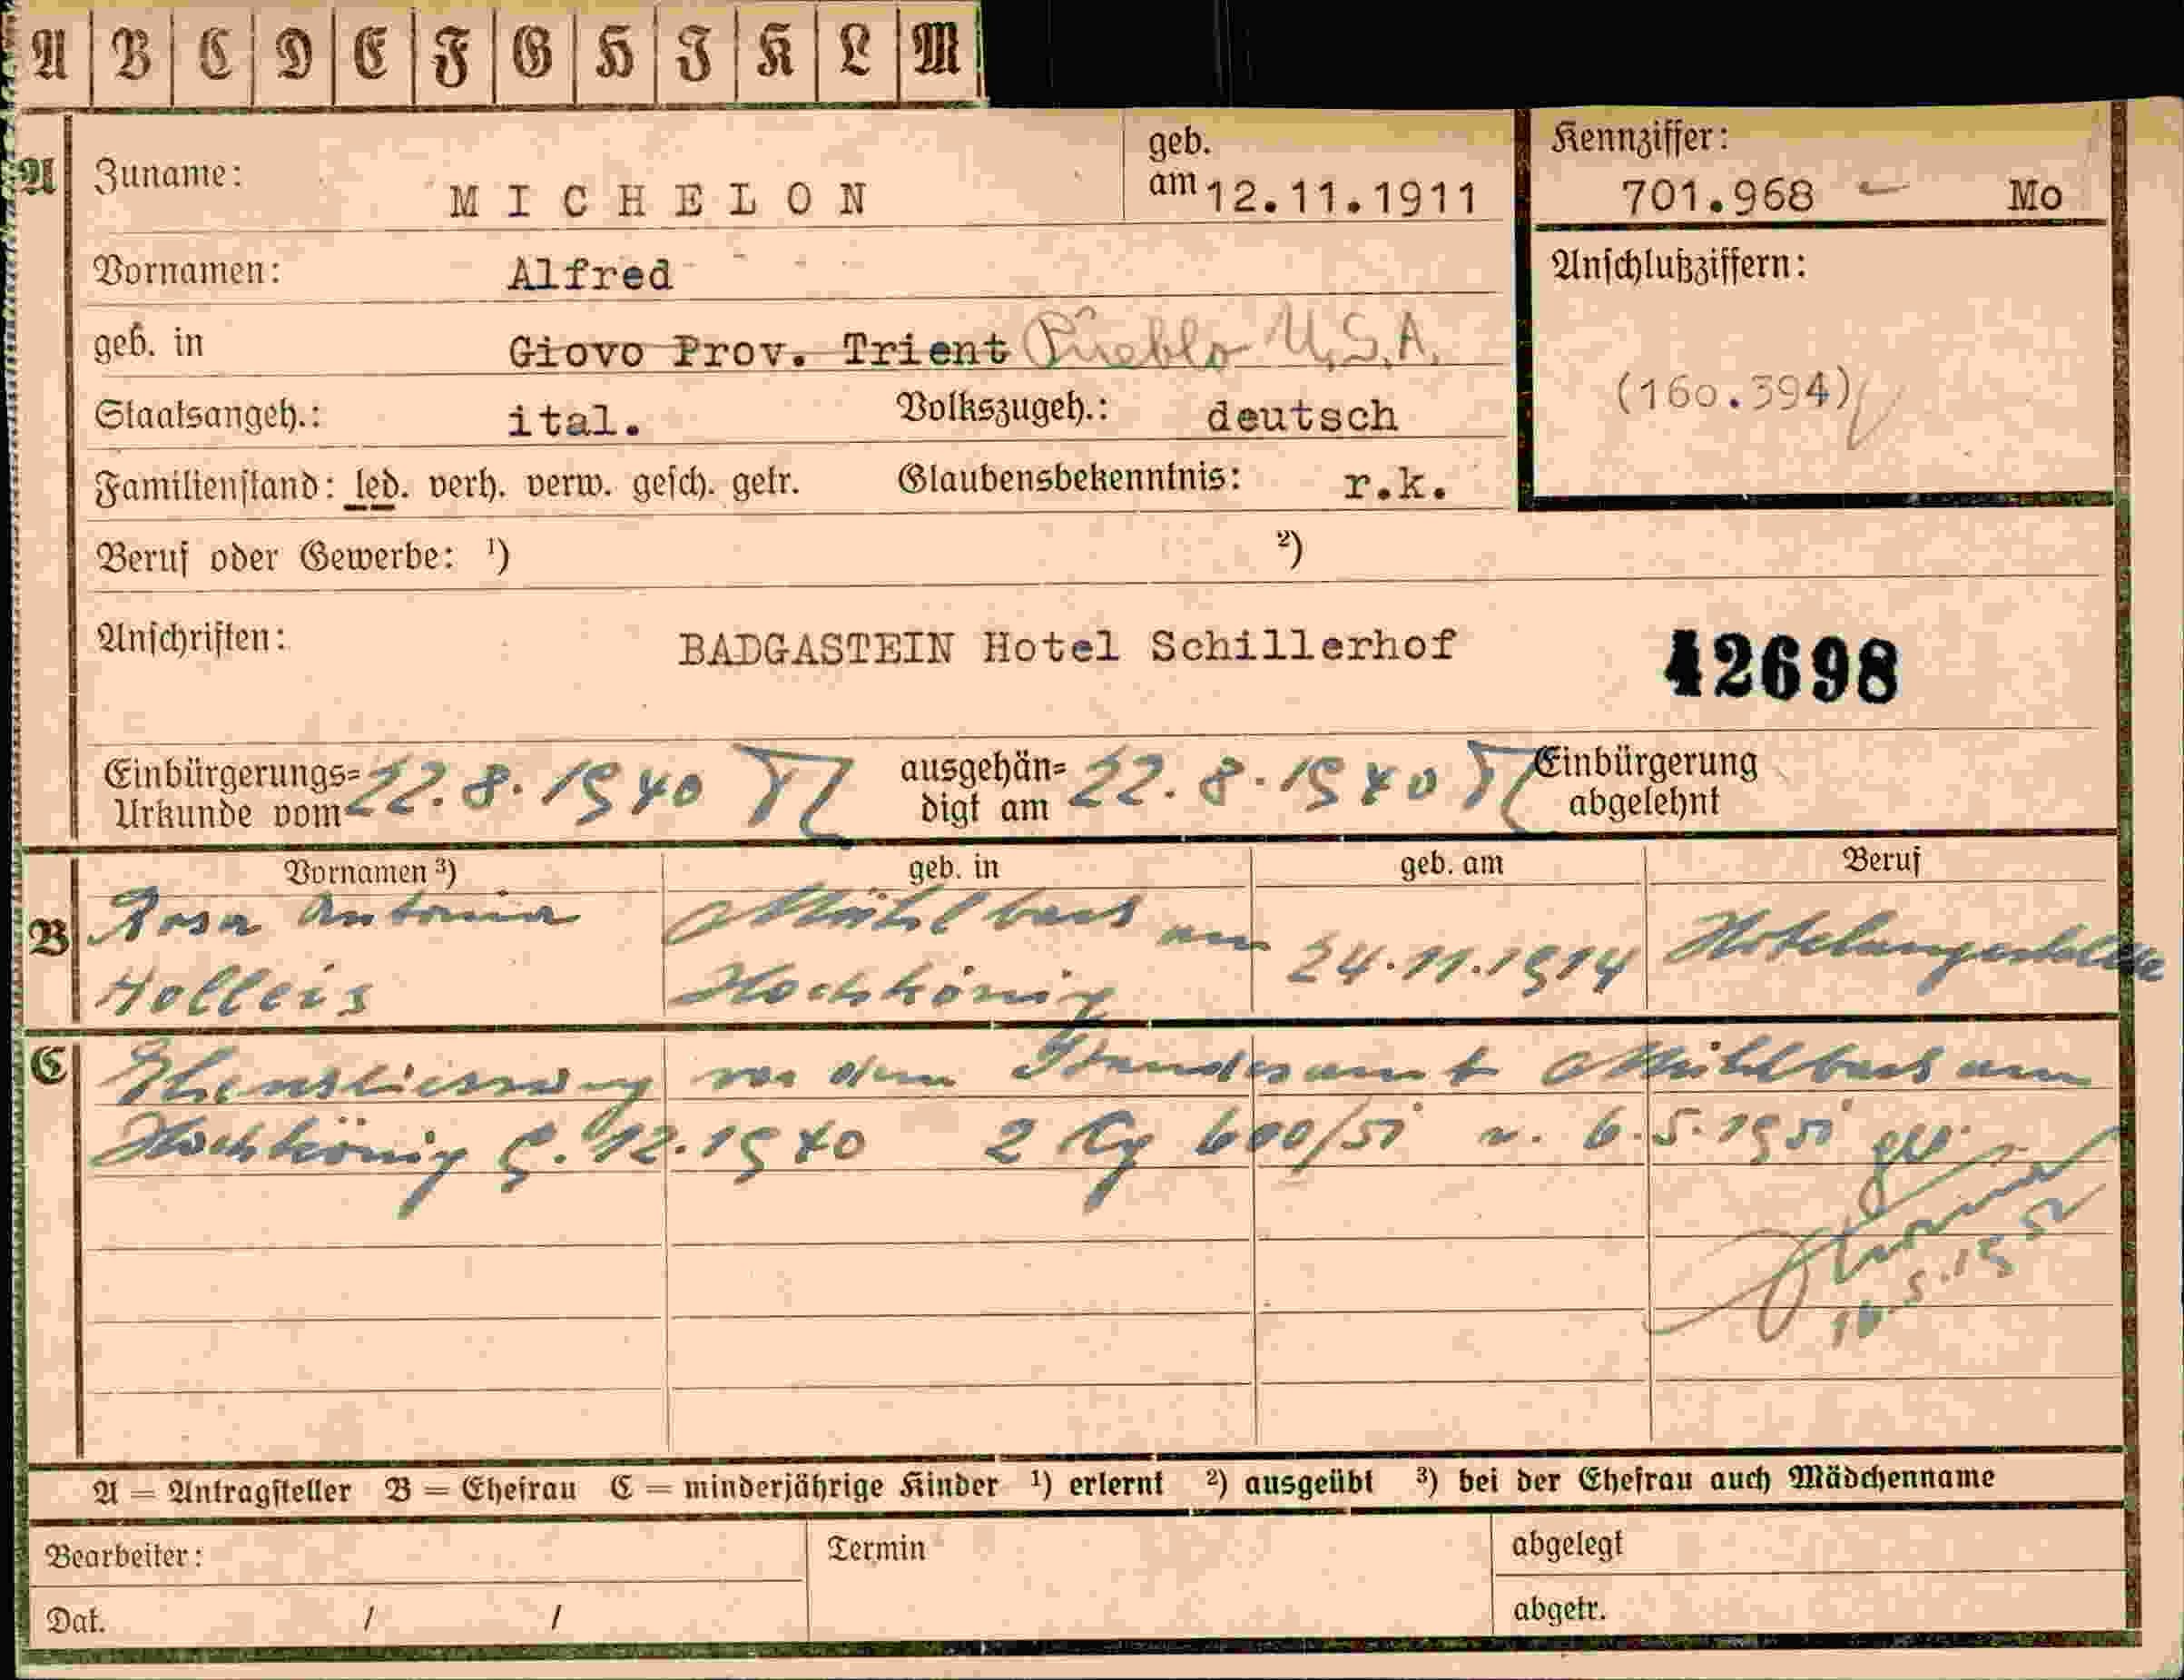 A B C D E F G H J K L M
A Zuname: MICHELON geb. am 12.11.1911 Kennziffer: 701.968 — Mo
Vornamen: Alfred Anschlußziffern:
geb. in Giovo Prov. Trient Pueblo U.S.A. (160.394)
Staatsangeh.: ital. Volkszugeh.: deutsch
Familienstand: led. verh. verw. gesch. getr. Glaubensbekenntnis: r.k.
Beruf oder Gewerbe: ¹) ²)
Anschriften: BADGASTEIN Hotel Schillerhof 42698
Einbürgerungs= Urkunde vom 22.8.1940 ausgehän= digt am 22.8.1940 Einbürgerung abgelehnt
Vornamen ³) geb. in geb. am Beruf
B Rosa Antonia Mühlbach am 24.11.1914 Hotelangestellte
Holleis Hochkönig
C Eheschliessung vor dem Standesamt Mühlbach am
Hochkönig 9.12.1940 2 600/51 v. 6.5.1951
A = Antragsteller B = Ehefrau C = minderjährige Kinder ¹) erlernt ²) ausgeübt ³) bei der Ehefrau auch Mädchenname
Bearbeiter: Termin abgelegt
Dat. / / abgetr.